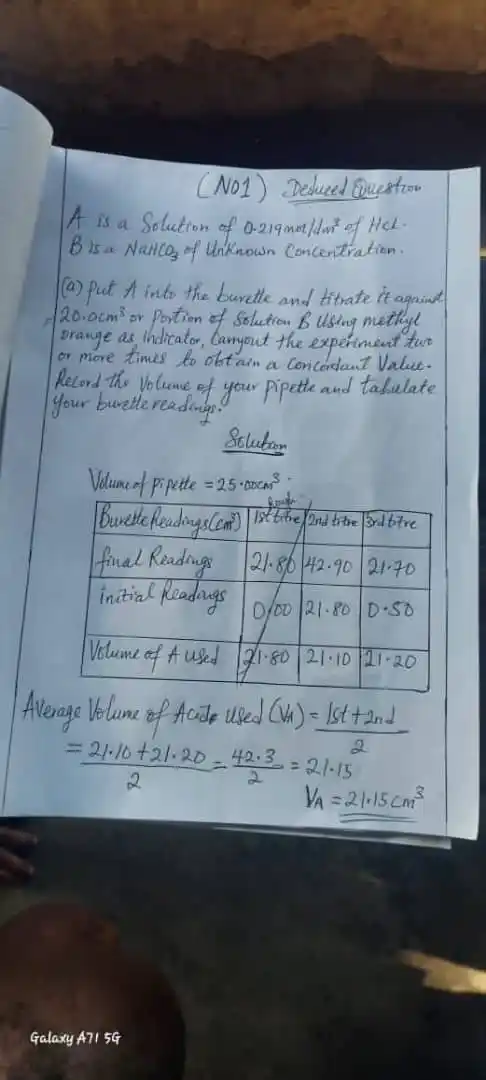 (NO1) Deduced Question
A is a Solution of 0.219mol/dm³ of HCl.
B is a NaHCO₃ of Unknown Concentration.
(a) Put A into the burette and titrate it against
20.0cm³ or Portion of Solution B Using methyl
orange as indicator, Carryout the experiment two
or more times to obtain a Concordant Value.
Record the Volume of your pipette and tabulate
your burette readings.
Solution
Volume of pipette = 25.00cm³.
Rough
Burette Readings (cm³) 1st titre 2nd titre 3rd titre
final Readings 21.80 42.90 21.70
initial Readings 0.00 21.80 0.50
Volume of A used 21.80 21.10 21.20
Average Volume of Acid used (VA) = 1st + 2nd
2
= 21.10 + 21.20 = 42.3 = 21.15
2 2
VA = 21.15cm³
Galaxy A71 5G